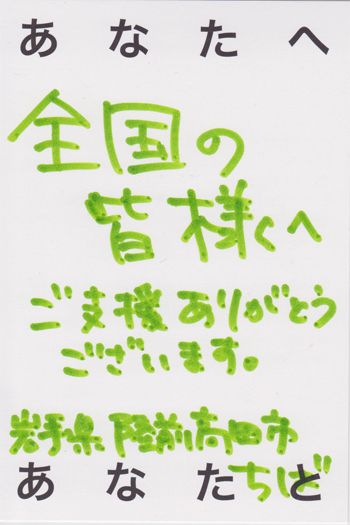 あなたへ
全国の
皆様へ
ご支援ありがとう
ございます。
岩手県 陸前高田市
あなたと